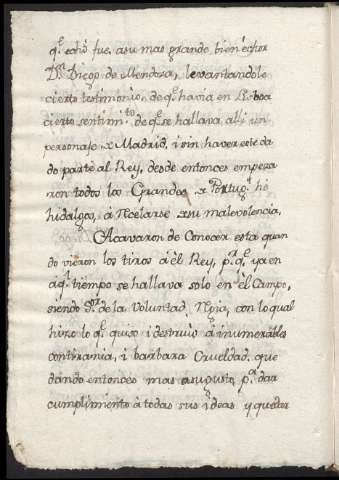 q.e echó fue, a su mas grande bienechor
D.n Diego de Mendoza, levantandole
cierto testimonio, de q.e havia en Lisboa
cierto sentimi.to de q.e se hallava alli un
personaje de Madrid, i sin haver este da
do parte al Rey, desde entonces empeza
ron todos los Grandes de Portug.l hô
hidalgos, á recelarse de su malevolencia,
Acavaron de Conocer esta quan
do vieron los tiros á él Rey, p.r q.e ya en
aq.l tiempo se hallava solo en el Campo,
siendo S.r de la Voluntad Regia, con lo qual
hizo lo q.e quiso i destruiò á inumerables
con tirania, i barbara Crueldad, que
dando entonces mas a su gusto, p.a dar
cumplimiento á todas sus ideas y quedar